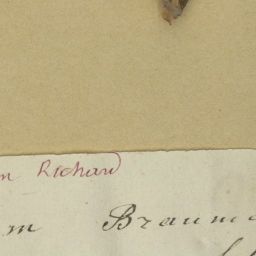 n Richard
m Braum